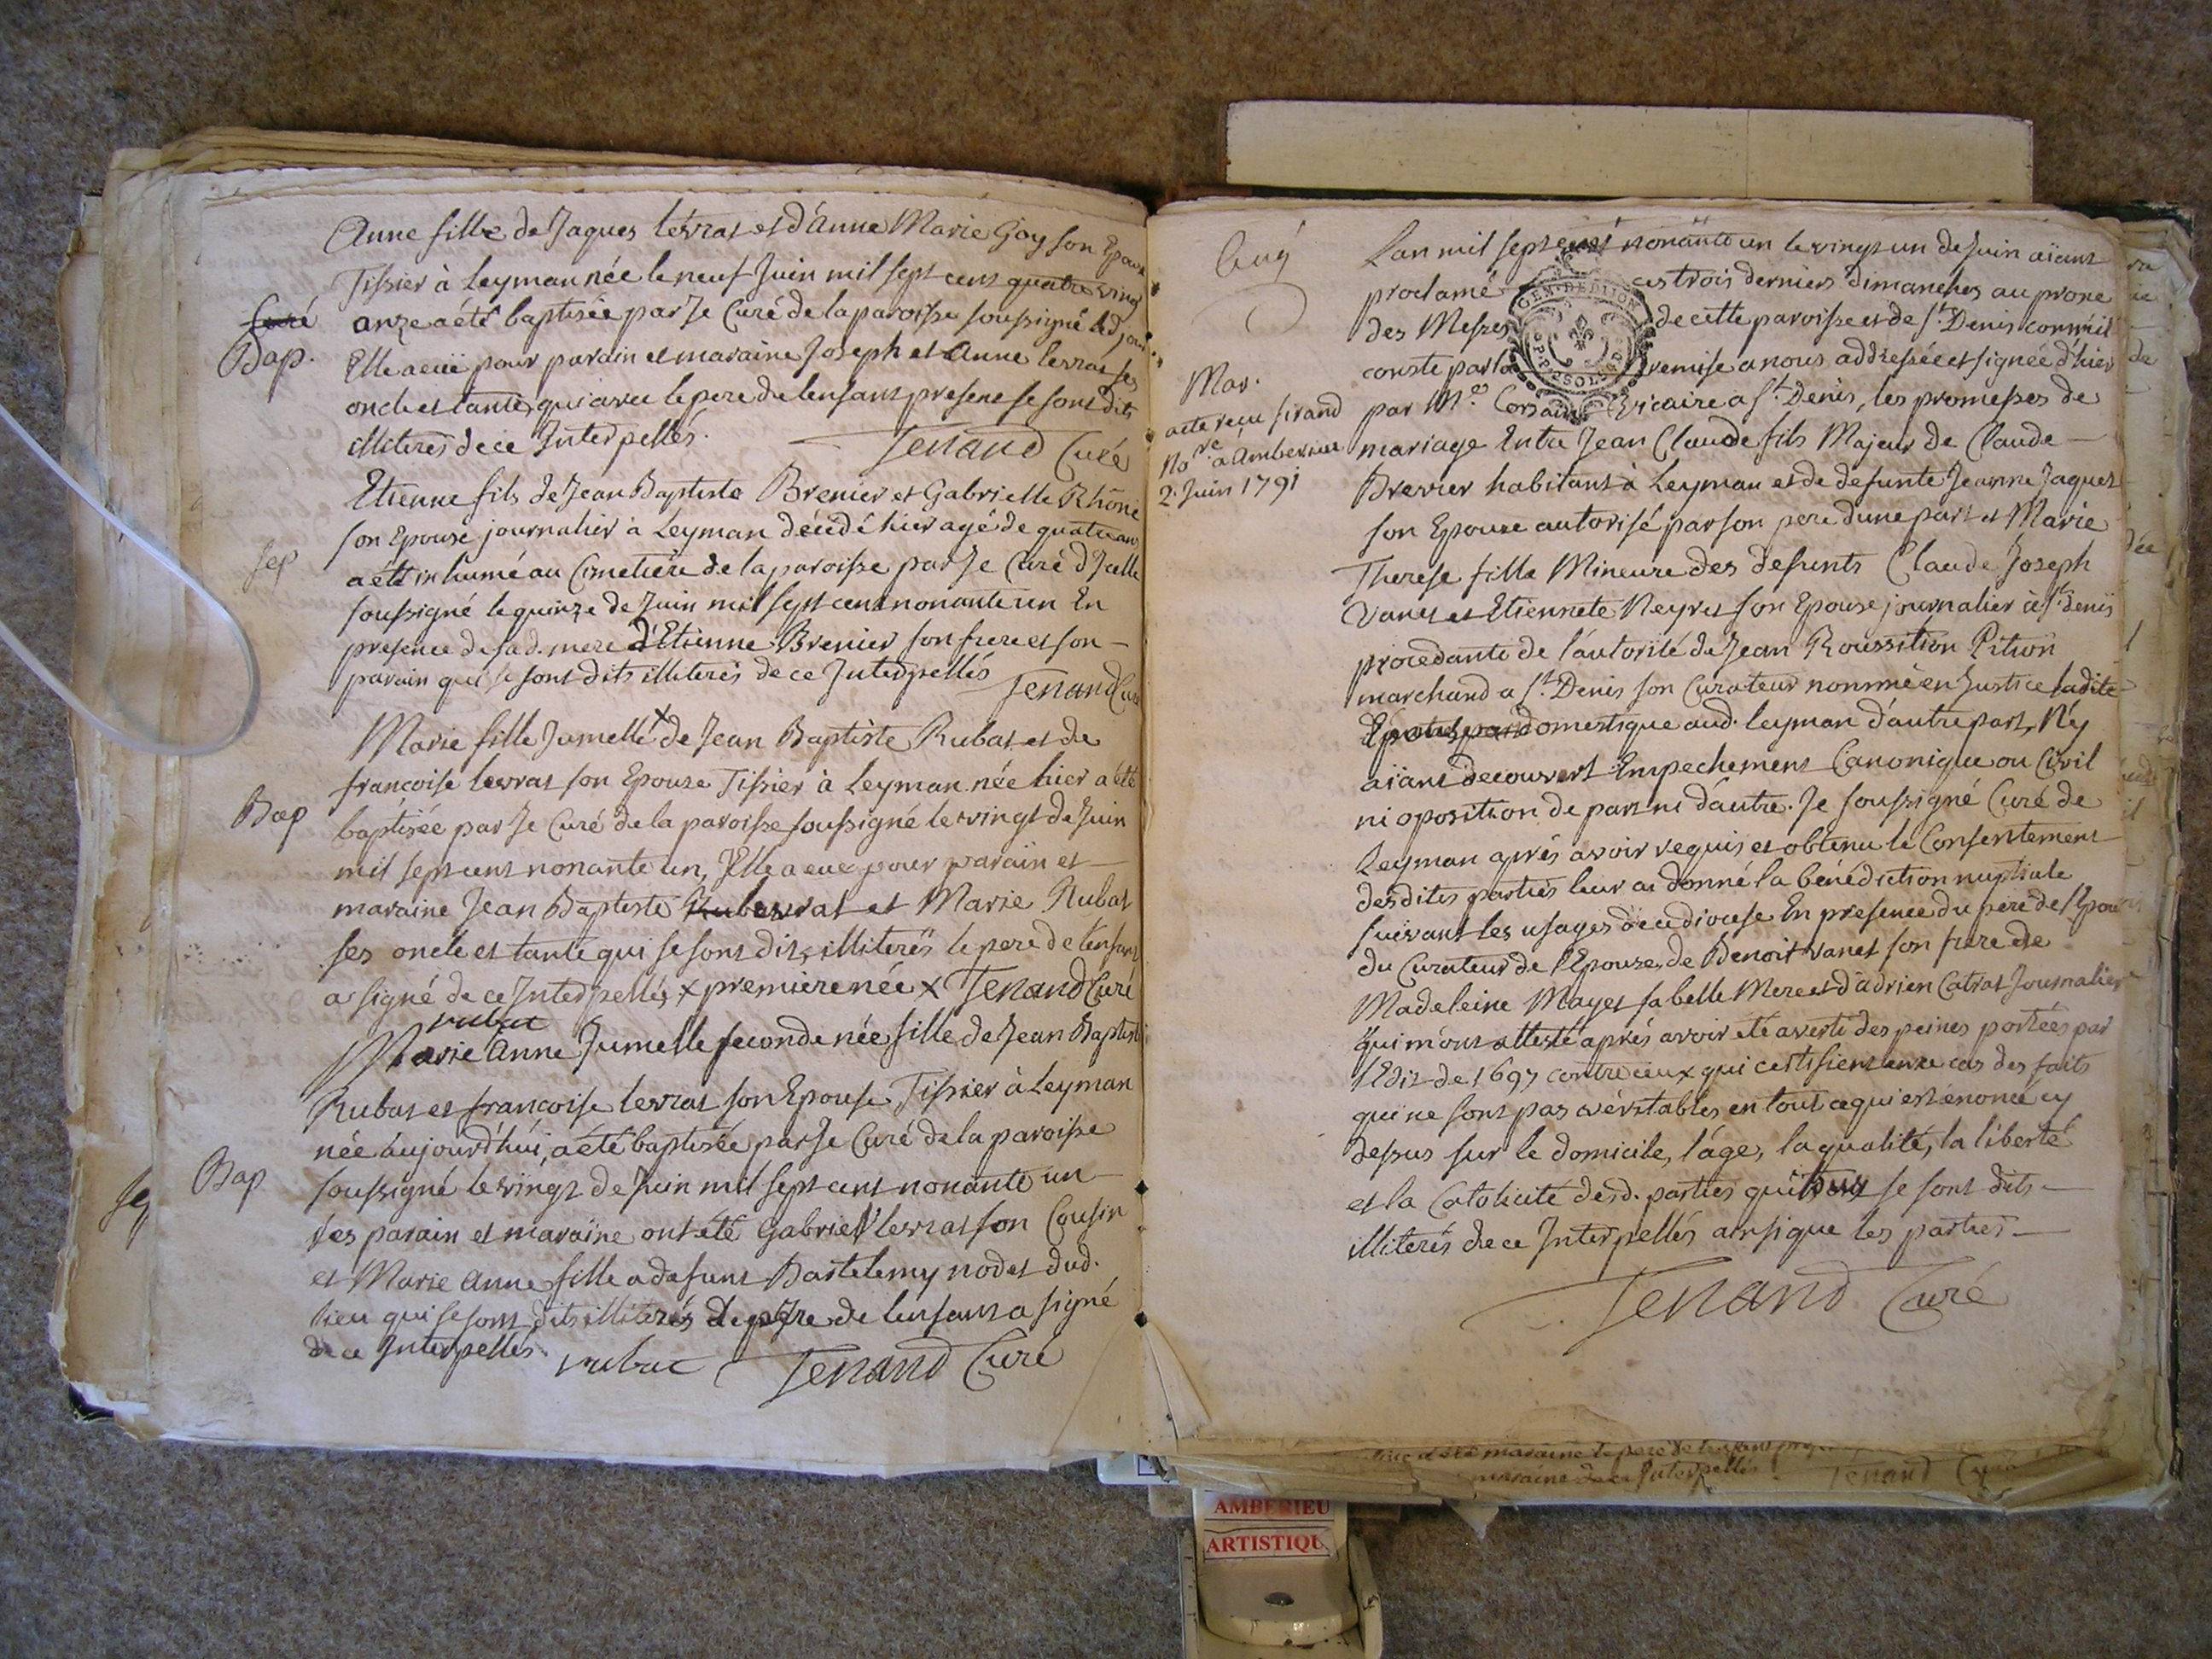 Anne fille de Jaques levrat et d'Anne Marie Goy son Epouse
Tissier à Leyman née le neuf Juin mil sept cent quatre vingt
onze a été baptisée par Je Curé de la paroisse soussigné led. jour
Curé
Bap.
Elle a eüe pour parain et maraine Joseph et Anne levrat ses
oncle et tante, qui avec le pere de lenfant present se sont dits
illiterés de ce Interpellés.
Tenand Curé
Etienne fils de Jean Baptiste Brenier et Gabrielle Rhône
son Epouse journalier à Leyman décédé hier agé de quatre ans
Sep
a été inhumé au Cimetiére de la paroisse par Je Curé d'Icelle
soussigné le quinze de Juin mil sept cent nonante un En
presence de sad. mere d'Etienne Brenier son frere et son
parain qui se sont dits illiterés de ce Interpellés
Tenand Curé
Marie fille Jumelle x de Jean Baptiste Rubat et de
francoise levrat son Epouse Tissier à Leyman née hier a été
Bap
baptisée par Je Curé de la paroisse soussigné le vingt de Juin
mil sept cent nonante un, Elle a eue pour parain et
maraine Jean Baptiste levrat et Marie Rubat
ses oncle et tante qui se sont dits illiterés le pere de lenfant
a signé de ce Interpellés x premiere née x Tenand Curé
rubat
Marie Anne Jumelle seconde née fille de Jean Baptiste
Rubat et francoise levrat son Epouse Tissier à Leyman
née aujourd'hui, a été baptisée par Je Curé de la paroisse
Bap
soussigné le vingt de Juin mil sept cent nonante un
Sep
ses parain et maraine ont été Gabriel levrat son Cousin
et Marie Anne fille a defunt Bartelemy nodet dud.
lieu qui se sont dits illiterés le pere de lenfant a signé
de ce Interpellés.
rubat Tenand Curé
Lan mil sept cent nonante un le vingt un de Juin aïant
proclamé ces trois derniers dimanches au prone
des Messes de cette paroisse et de St. Denis comme il
GEN. DE DIJON
conste par la remise a nous addressée et signée d'hier
Mar.
acte recu sirand
Nore. a Amberieu
2. Juin 1791
par Me. Vicaire a St. Denis, les promesses de
mariage Entre Jean Claude fils Majeur de Claude
Brevier habitant à Leyman et de defunte Jeanne Jaquet
son Epouse autorisé par son pere dune part et Marie
Therese fille Mineure des defunts Claude Joseph
Vanet et Etiennete Neyret son Epouse journalier à St. denis
procedante de l'autorité de Jean Roussition Pition
marchand a St. Denis son Curateur nommé en Justice ladite
domestique aud. leyman d'autre part, N'y
aïant decouvert Empechement Canonique ou Civil
ni oposition de part ni d'autre. Je soussigné Curé de
Leyman aprés avoir requis et obtenu le Consentement
desdites parties leur ai donné la bénédiction nuptiale
suivant les usages de ce diocese En presence du pere de l'Epoux
du Curateur de l'Epouse, de Benoit vanet son frere de
Madeleine Mayet sa belle Mere et d'adrien Catrat Journalier
qui m'ont attesté aprés avoir eté averti des peines portées par
l'Edit de 1697 contre ceux qui certifient en ce cas des faits
qui ne sont pas véritables en tout ce qui est énoncé cy
dessus sur le domicile, l'âge, la qualité, la liberté
et la Catolicité desd. parties qui tous se sont dits
illiterés de ce Interpellés ainsi que les parties
Tenand Curé
maraine de ce Interpellés Tenand Curé
AMBERIEU
ARTISTIQU